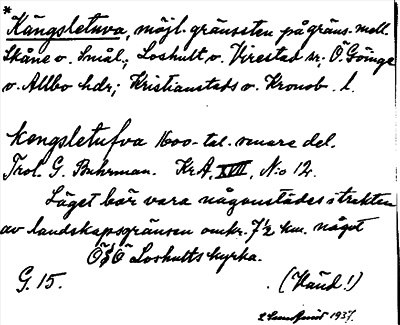 * Kängsletuva, möjl. gränssten på gräns. mell.
Skåne o. Smål.; Loshult o. Virestad sr; Ö Göinge
o. Allbo hdr; Kristianstads o. Kronob. l.
kengsletufva 1600-tal. senare del.
Trol. G. Buhrman. KrA, XVII, N:o 12.
Läget bör vara någonstädes i trakten
av landskapsgränsen omkr. 7½ km. något
ÖSÖ Loshults kyrka.
G. 15. (Känd!)
1937.